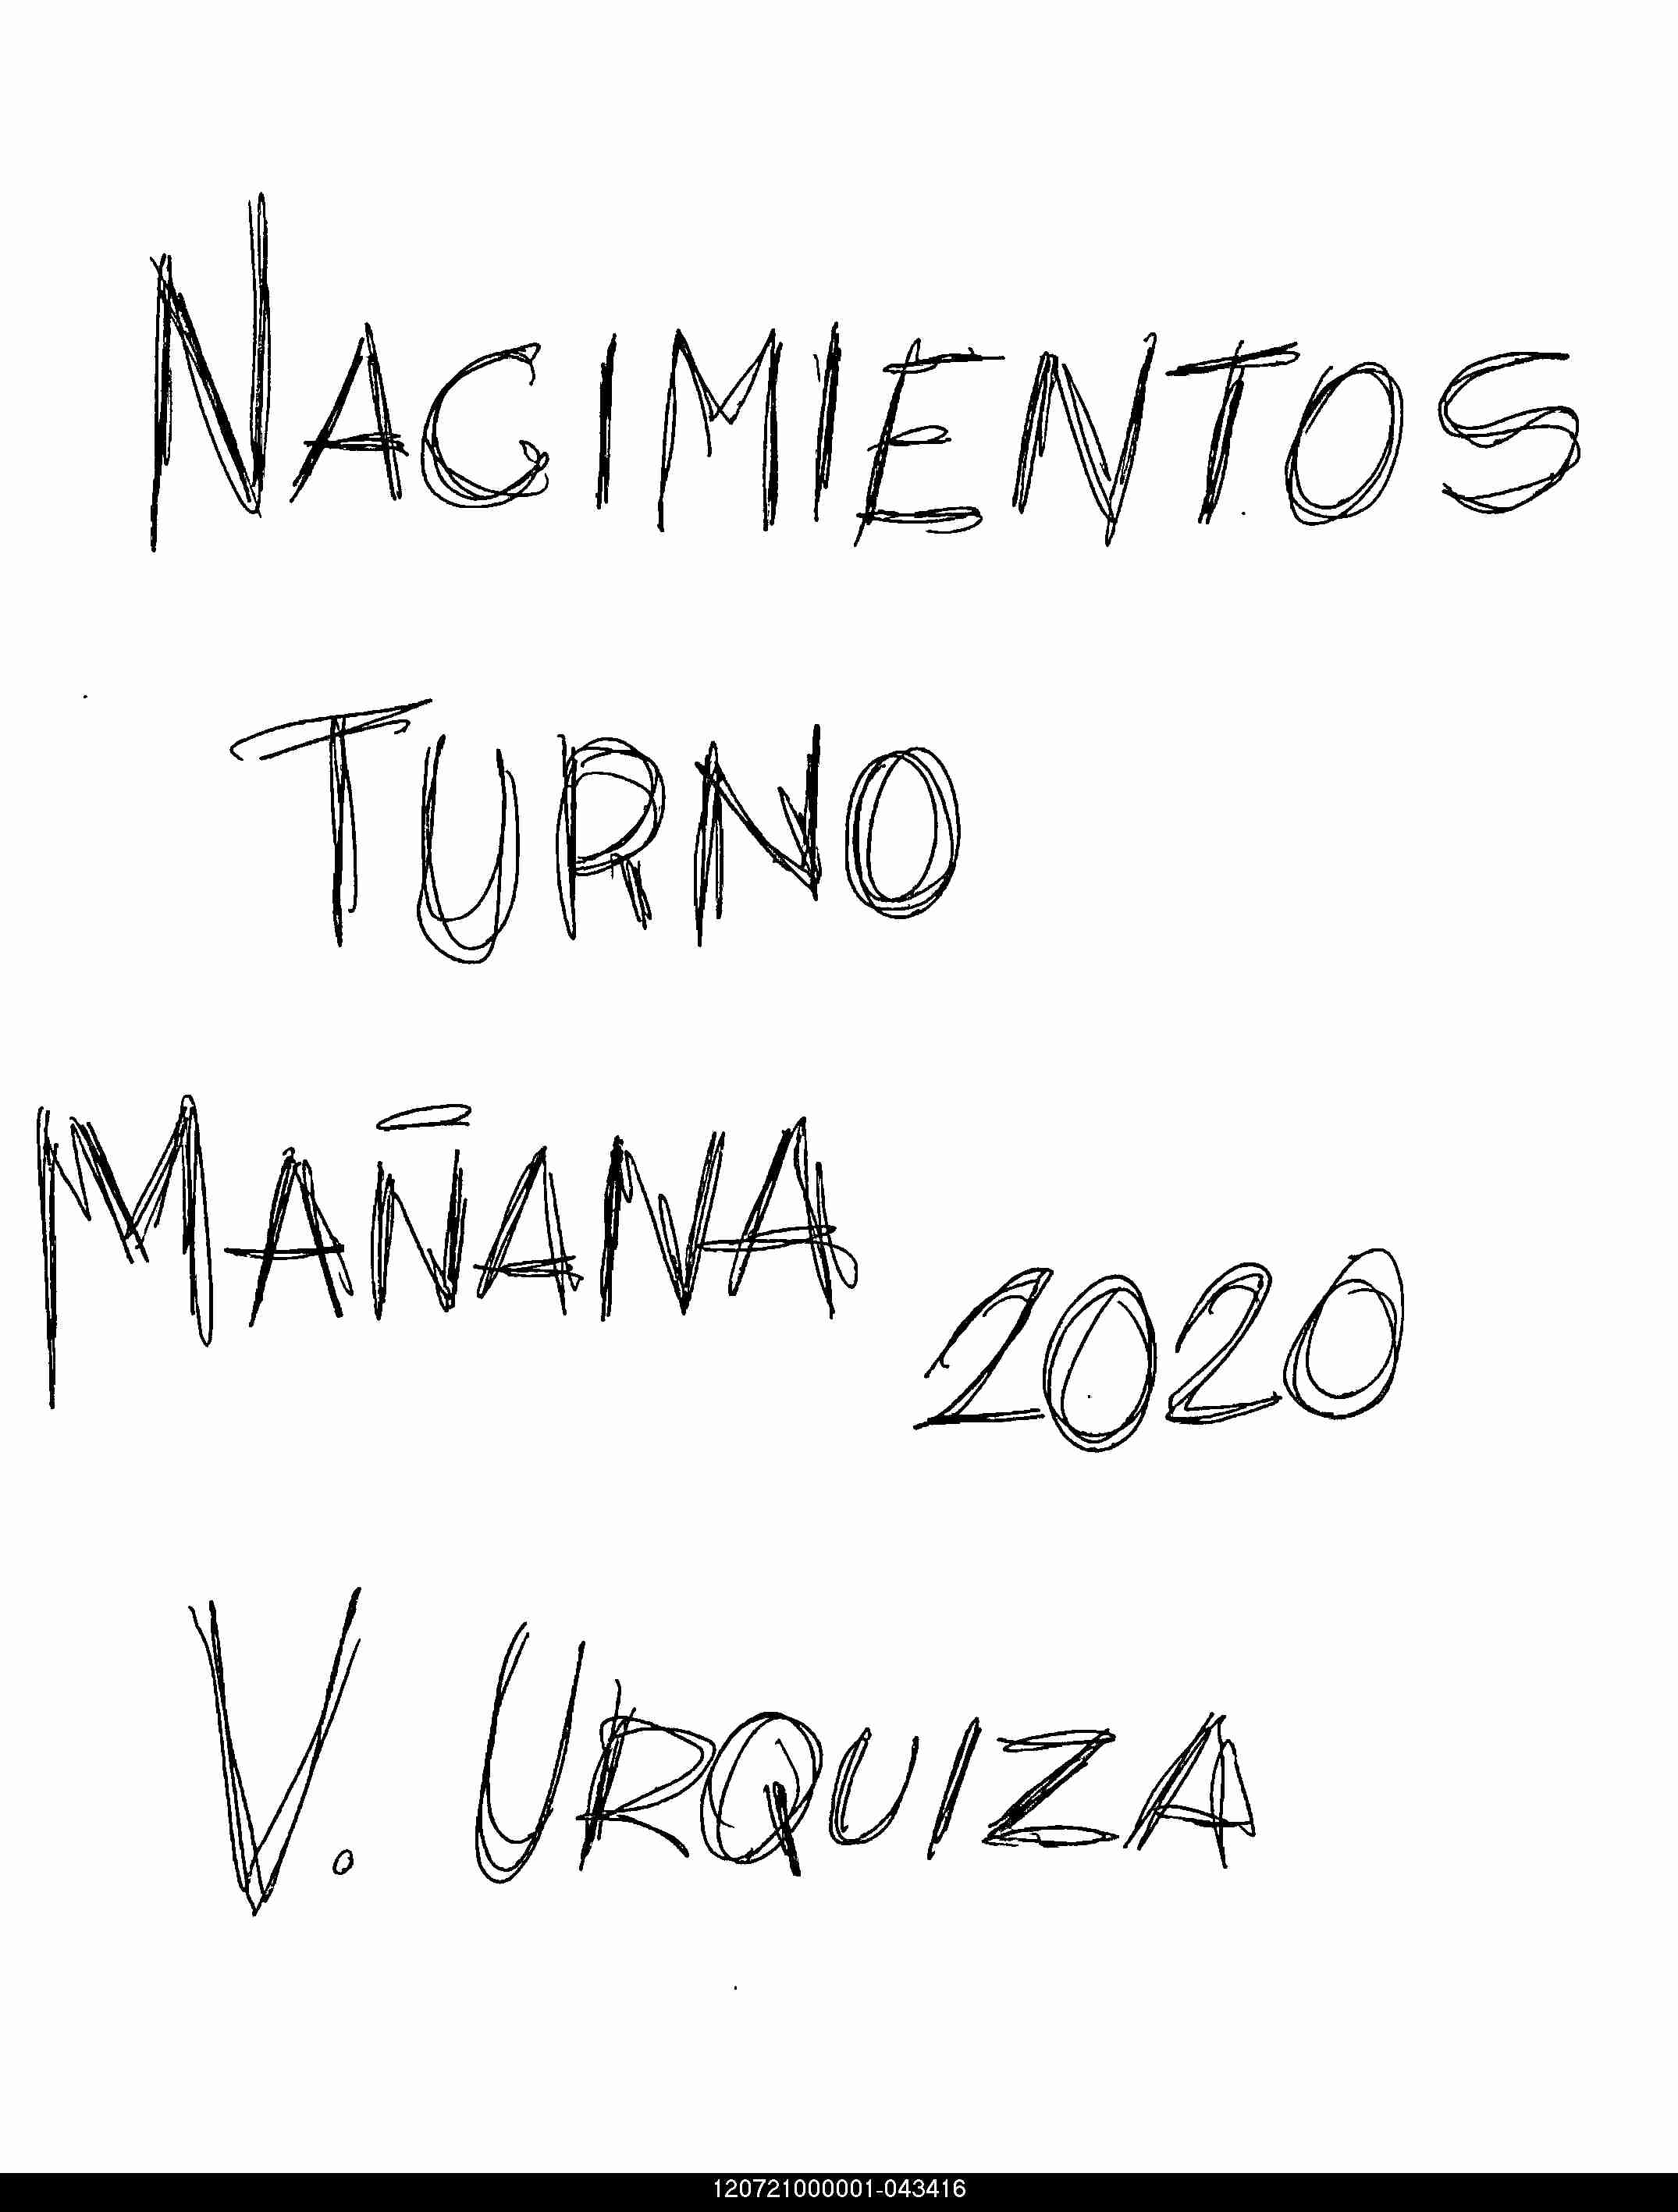 NACIMIENTOS
TURNO
MAÑANA
2020
V. URQUIZA
120721000001-043416